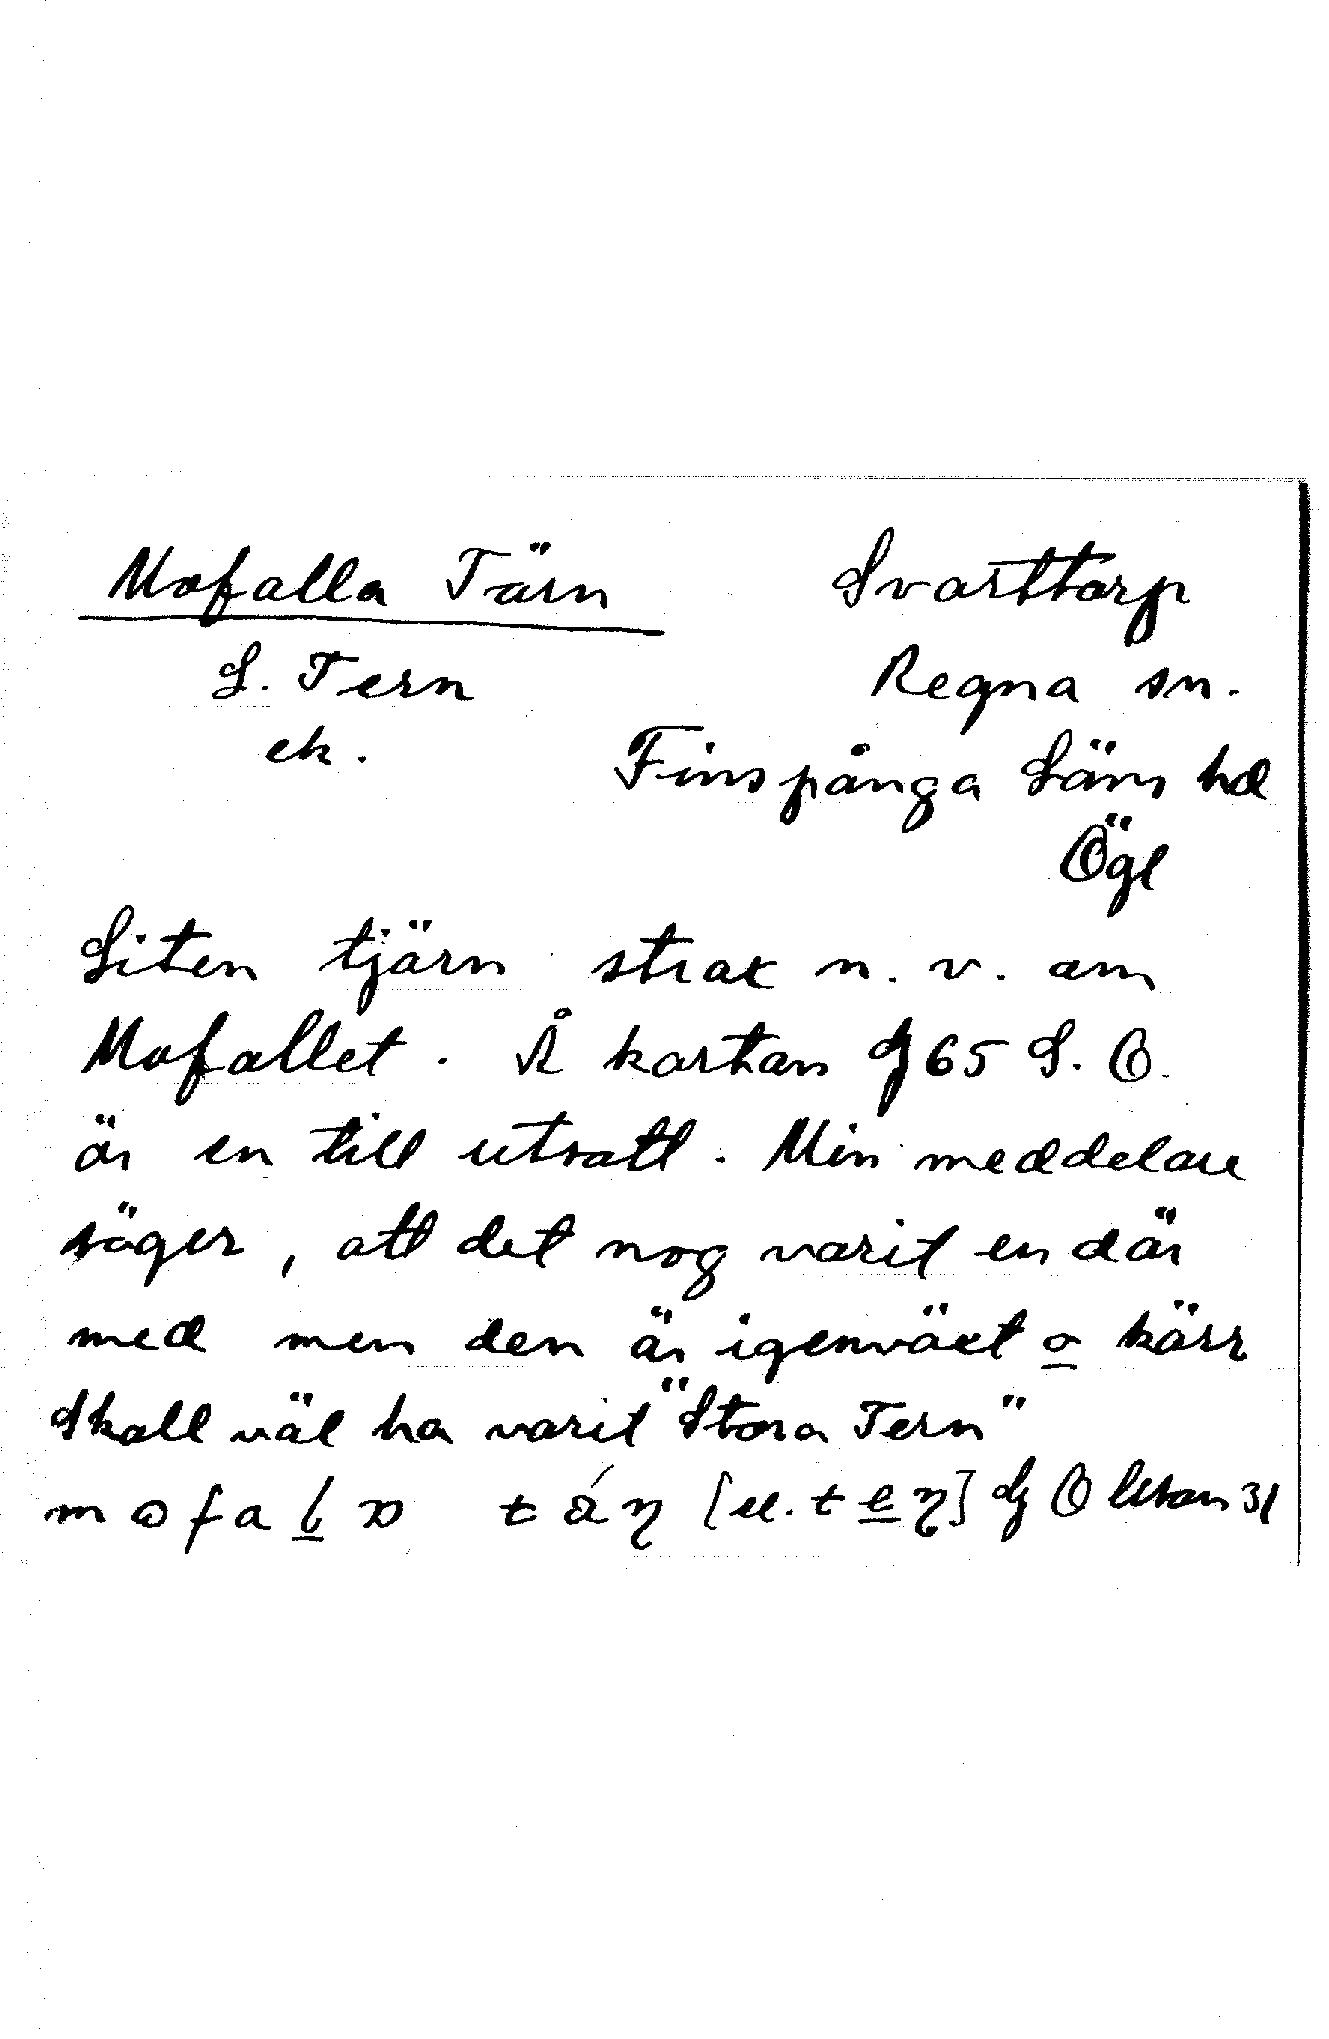 Mofalla Tärn
Svarttorp
L. Tern
Regna sn.
ek.
Finspånga Läns hd
Ögl
Liten tjärn strax n. v. om
Mofallet. Å kartan 65 S. O.
är en till utsatt. Min meddelare
säger, att det nog varit en där
med men den är igenväxt o kärr
Skall väl ha varit "Stora Tern"